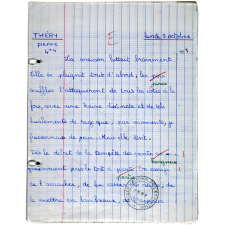 THÉRY
PIERRE
N°4
E
lundi 3 octobre
La maison luttait bravement.
Elle se plaignit tout d'abord, les
souffles l'attaquèrent de tous les côtés à la
fois, avec une haine distincte et de tels
hurlements de rage que, par moments, je
frissonnais de peur. Mais elle tint.
Dès le début de la tempête des vents
le toit
de l'arracher, de lui casser les reins, de
le mettre en lambeaux, de